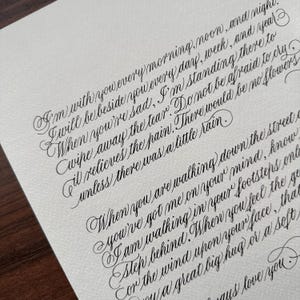 I'm with you every morning, noon, and night.
I will be beside you every day, week, and year
When you're sad, I'm standing there to
wipe away the tear. Do not be afraid to cry
it relieves the pain. There would be no flowers
unless there was a little rain
When you are walking down the street
you've got me on your mind, know
I am walking in your footsteps
step behind. When you feel the
or the wind upon your face, that
you a great big hug or a soft
always love you.